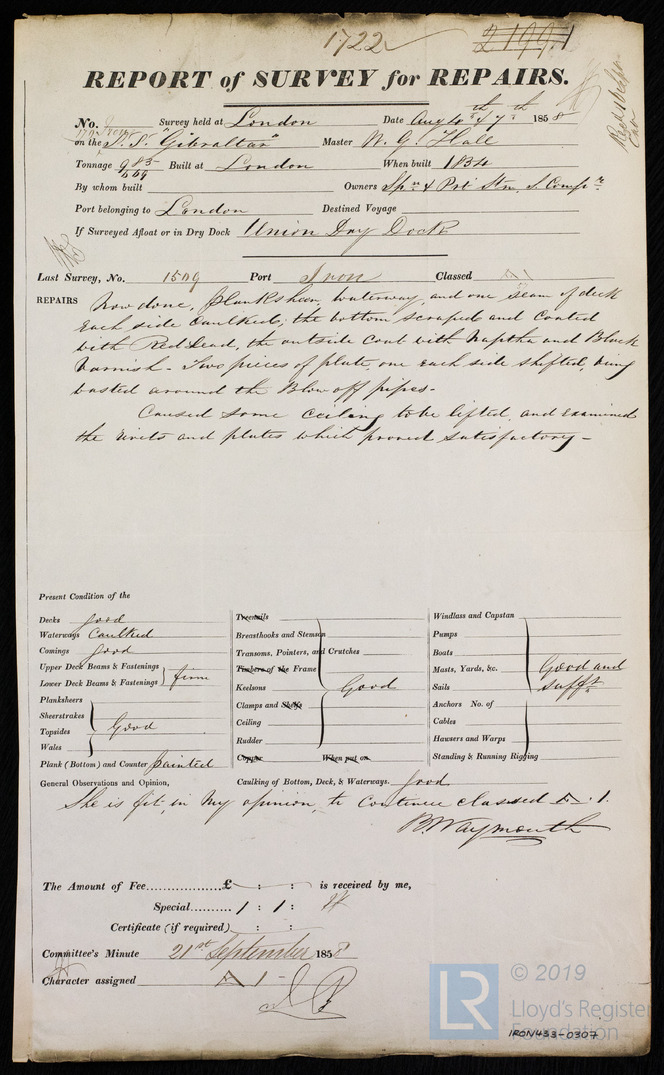 1722
2199.1
REPORT of SURVEY for REPAIRS.
No. Survey held at London Date Augt 4th & 7th 1858
on the S.S. "Gibraltar" Master W. G. Hall
Tonnage 985 Built at London When built 1834
669
By whom built Owners Spn & Port Stm. S. Compy
Port belonging to London Destined Voyage
If Surveyed Afloat or in Dry Dock Union Dry Dock
Last Survey, No. 1509 Port Iron Classed A 1
REPAIRS Now done, Planksheer, waterway, and one seam of deck
each side caulked; the bottom scraped and coated
with Red Lead, the outside coat with Naptha and Black
Varnish - Two pieces of plate, one each side shifted, being
wasted around the Blow off pipes -
Caused some ceiling to be lifted, and examined
the rivets and plates which proved satisfactory -
Present Condition of the
Decks good
Waterways Caulked
Comings good
Upper Deck Beams & Fastenings
Lower Deck Beams & Fastenings firm
Planksheers
Sheerstrakes
Topsides Good
Wales
Plank (Bottom) and Counter painted
Treenails
Breasthooks and Stemson
Transoms, Pointers, and Crutches
Timbers of the Frame
Keelsons Good
Clamps and Shelfs
Ceiling
Rudder
Copper When put on
Windlass and Capstan
Pumps
Boats
Masts, Yards, &c. Good and
Sails sufft
Anchors No. of
Cables
Hawsers and Warps
Standing & Running Rigging
General Observations and Opinion, Caulking of Bottom, Deck, & Waterways. good
She is fit, in my opinion, to continue classed A. 1.
B. Waymouth
The Amount of Fee................£ : : is received by me,
Special.......... 1 : 1 :
Certificate (if required) : :
Committee's Minute 21st September 1858
Character assigned A 1 -
© 2019
LR
Lloyd's Register
Foundation
IRON433-0307